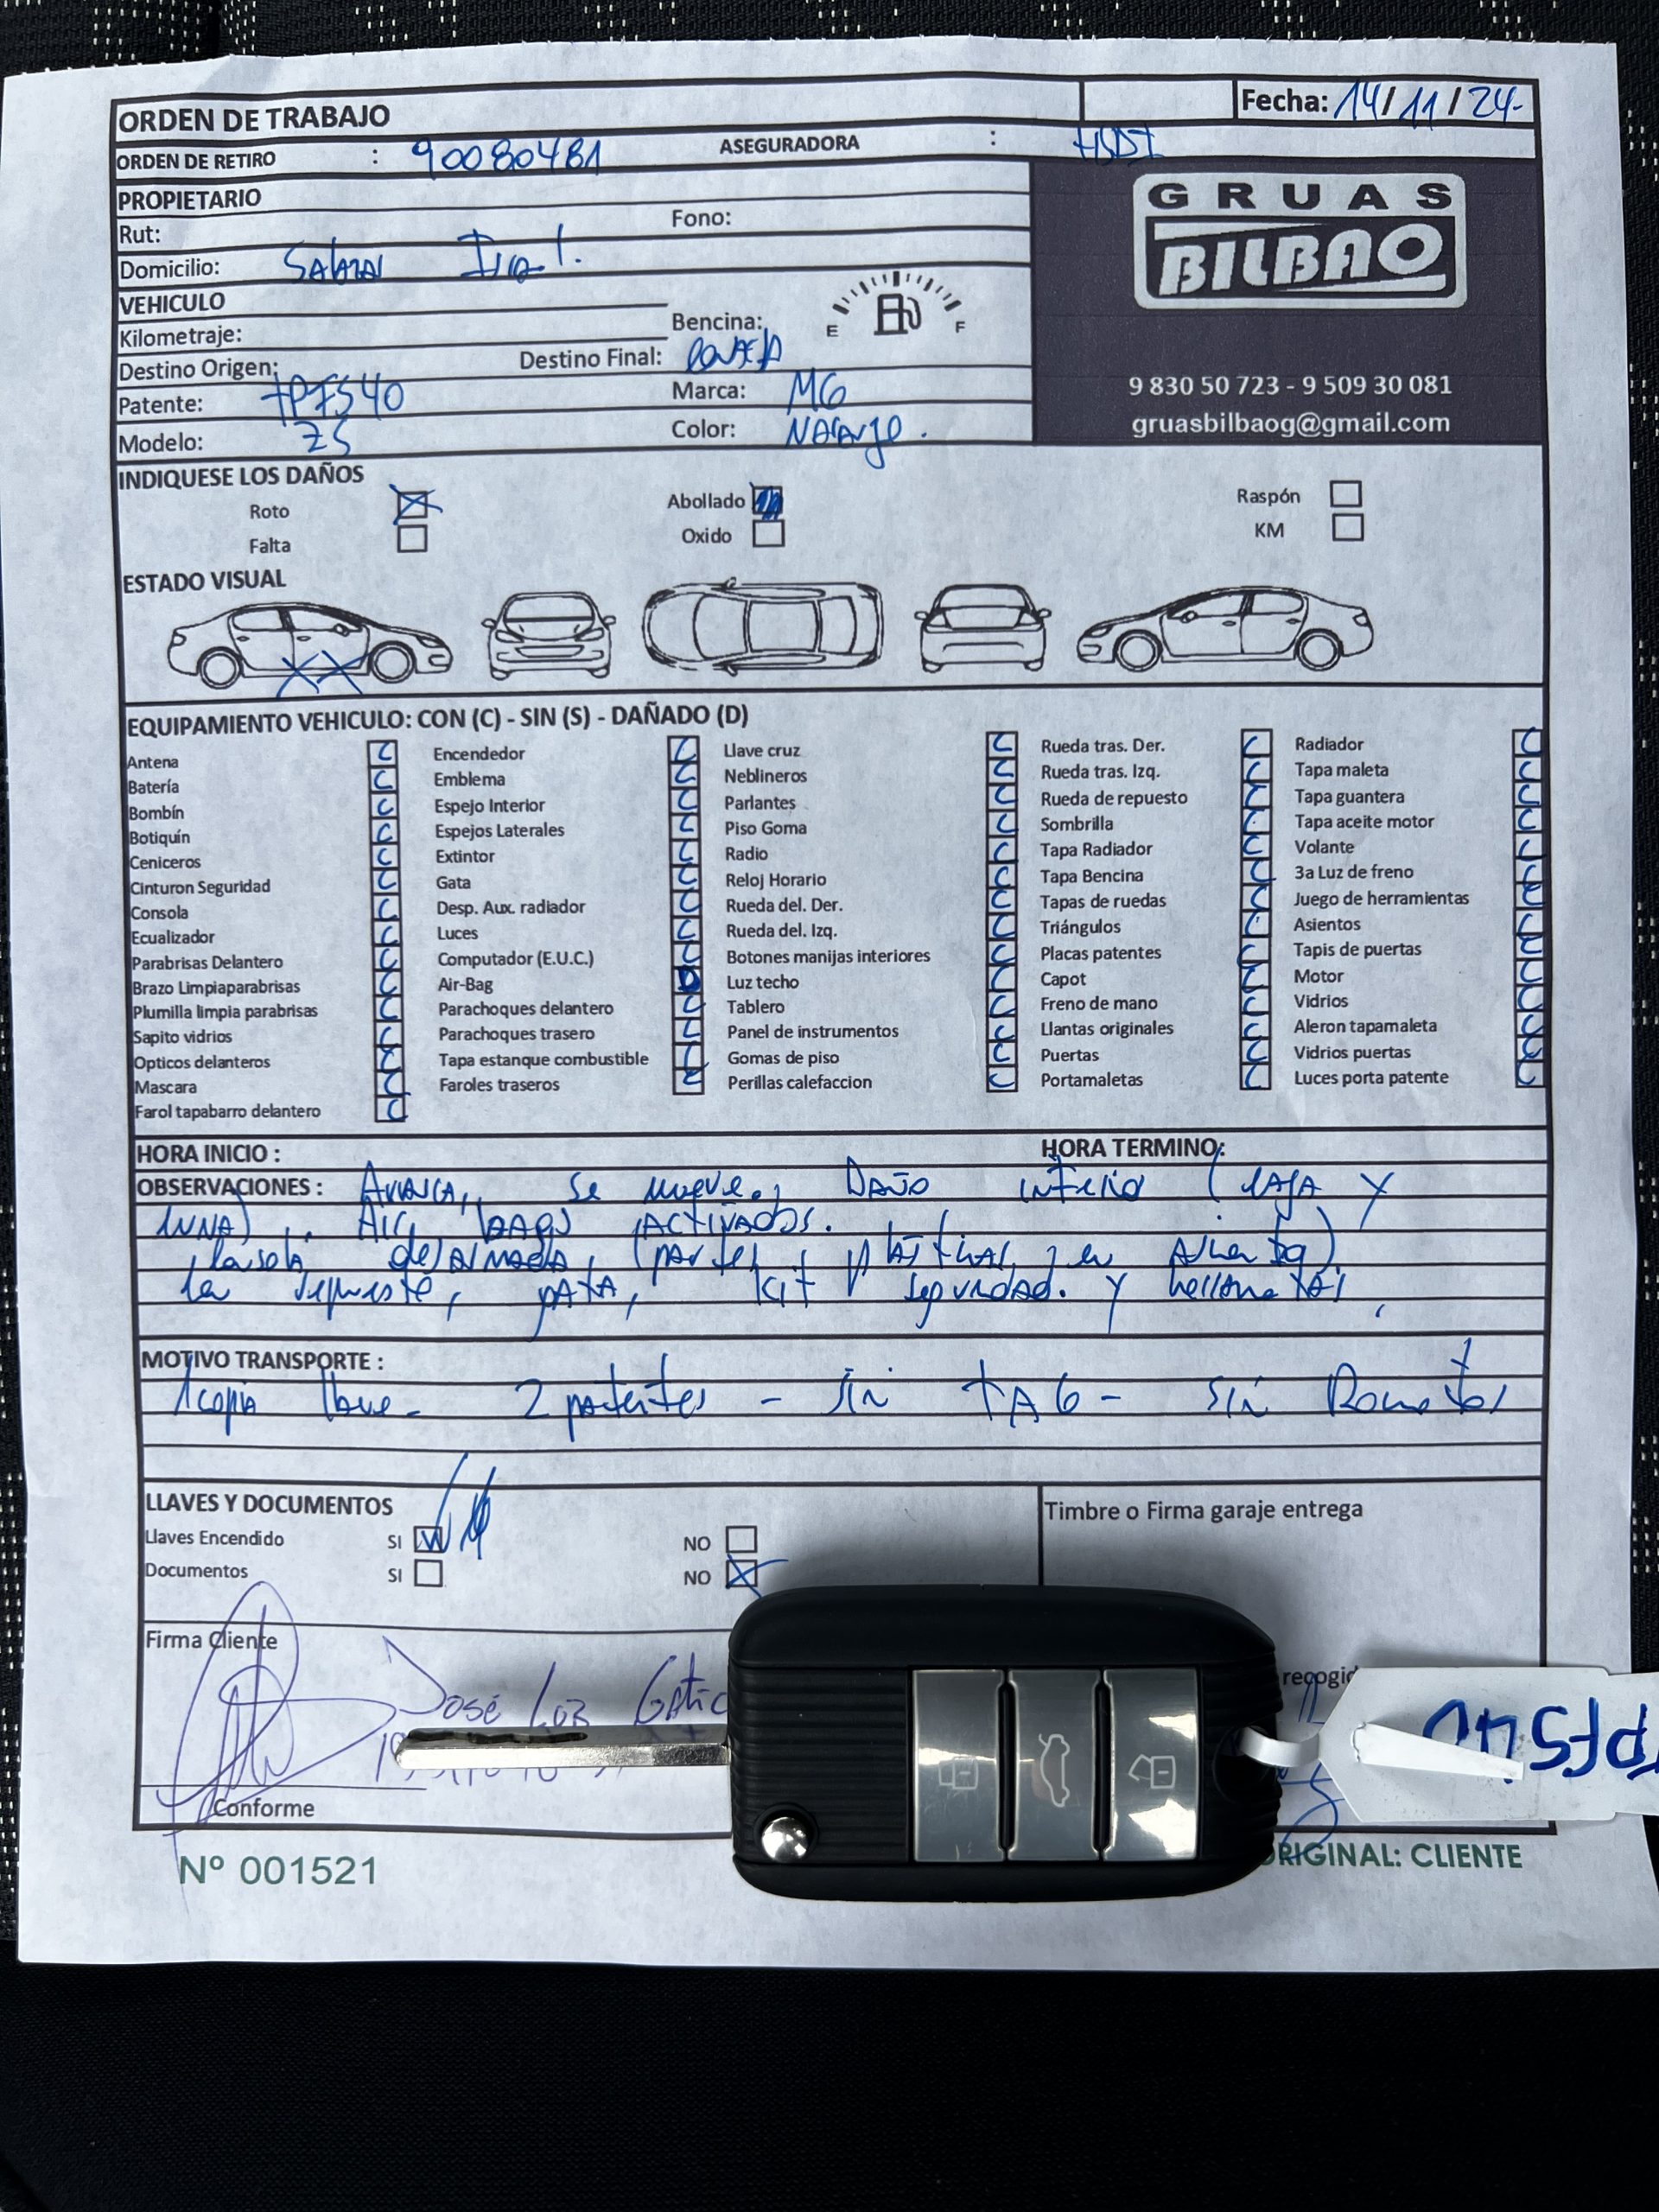 ORDEN DE TRABAJO
Fecha: 14/11/24-
ORDEN DE RETIRO : 90080481
ASEGURADORA : HSDI
PROPIETARIO
Rut:
Fono:
Domicilio: Salazar
VEHICULO
Kilometraje:
Bencina:
E F
Destino Origen:
Destino Final:
Patente: TPFS40
Marca: MG
Modelo: ZS
Color: Naranjo.
GRUAS
BILBAO
9 830 50 723 - 9 509 30 081
gruasbilbaog@gmail.com
INDIQUESE LOS DAÑOS
Roto
Abollado
Raspón
Falta
Oxido
KM
ESTADO VISUAL
EQUIPAMIENTO VEHICULO: CON (C) - SIN (S) - DAÑADO (D)
Antena C
Batería C
Bombín C
Botiquín C
Ceniceros C
Cinturon Seguridad C
Consola C
Ecualizador C
Parabrisas Delantero C
Brazo Limpiaparabrisas C
Plumilla limpia parabrisas C
Sapito vidrios C
Opticos delanteros C
Mascara C
Farol tapabarro delantero C
Encendedor C
Emblema C
Espejo Interior C
Espejos Laterales C
Extintor C
Gata C
Desp. Aux. radiador C
Luces C
Computador (E.U.C.) C
Air-Bag D
Parachoques delantero C
Parachoques trasero C
Tapa estanque combustible C
Faroles traseros C
Llave cruz C
Neblineros C
Parlantes C
Piso Goma C
Radio C
Reloj Horario C
Rueda del. Der. C
Rueda del. Izq. C
Botones manijas interiores C
Luz techo C
Tablero C
Panel de instrumentos C
Gomas de piso C
Perillas calefaccion C
Rueda tras. Der. C
Rueda tras. Izq. C
Rueda de repuesto C
Sombrilla C
Tapa Radiador C
Tapa Bencina C
Tapas de ruedas C
Triángulos C
Placas patentes C
Capot C
Freno de mano C
Llantas originales C
Puertas C
Portamaletas C
Radiador C
Tapa maleta C
Tapa guantera C
Tapa aceite motor C
Volante C
3a Luz de freno C
Juego de herramientas C
Asientos C
Tapis de puertas C
Motor C
Vidrios C
Aleron tapamaleta C
Vidrios puertas C
Luces porta patente C
HORA INICIO :
HORA TERMINO:
OBSERVACIONES : se mueve. Daño inferior (caja y
Air bags activados.
desarmada, (partes plásticas en
repuesto, gata, kit seguridad. y
MOTIVO TRANSPORTE :
1 copia llave - 2 patentes - sin TAG - sin
LLAVES Y DOCUMENTOS
Llaves Encendido SI NO
Documentos SI NO
Timbre o Firma garaje entrega
Firma Cliente
José
Conforme
Nº 001521
ORIGINAL: CLIENTE